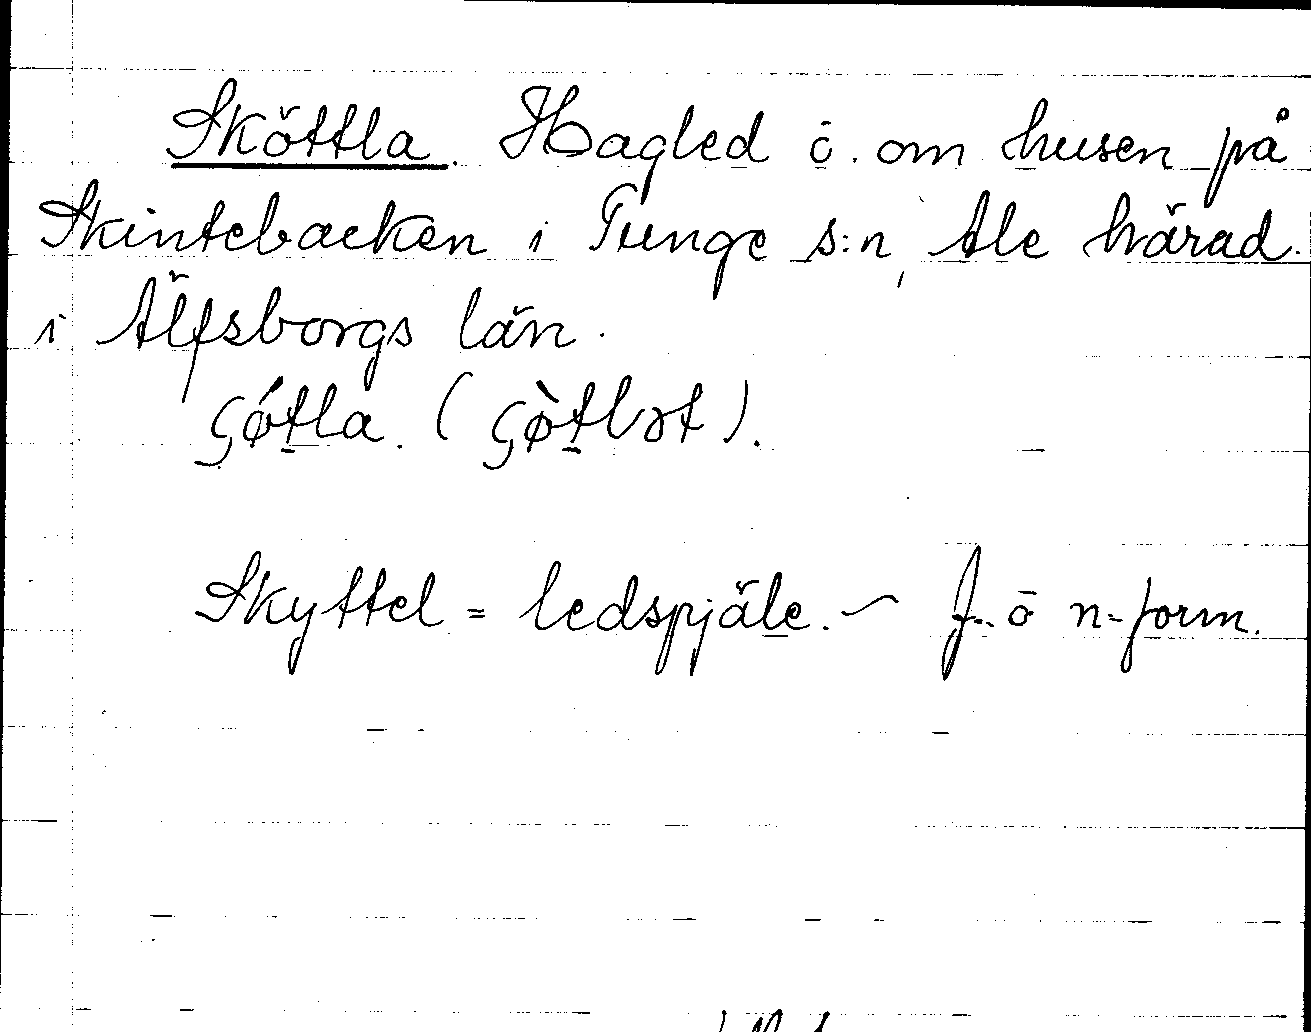 Sköttla. Hagled ö. om husen på
Skintebacken i Tunge s:n, Ale härad
i Älfsborgs län.
ʂǿtla. (ʂø̀tlət).
Skyttel = ledspjäle. — f. ö n-form.